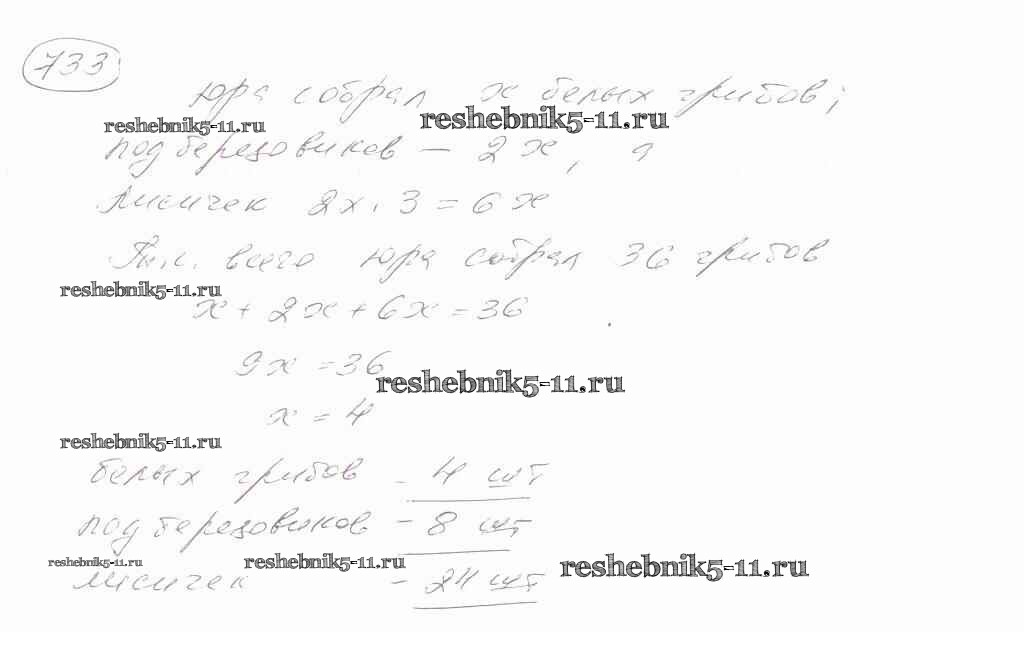 733
Юра собрал x белых грибов;
reshebnik5-11.ru
reshebnik5-11.ru
подберезовиков — 2x, а
лисичек 2x · 3 = 6x
Т.к. всего Юра собрал 36 грибов
reshebnik5-11.ru
x + 2x + 6x = 36
9x = 36
reshebnik5-11.ru
x = 4
reshebnik5-11.ru
белых грибов - 4 шт
подберезовиков - 8 шт
reshebnik5-11.ru
reshebnik5-11.ru
reshebnik5-11.ru
лисичек - 24 шт